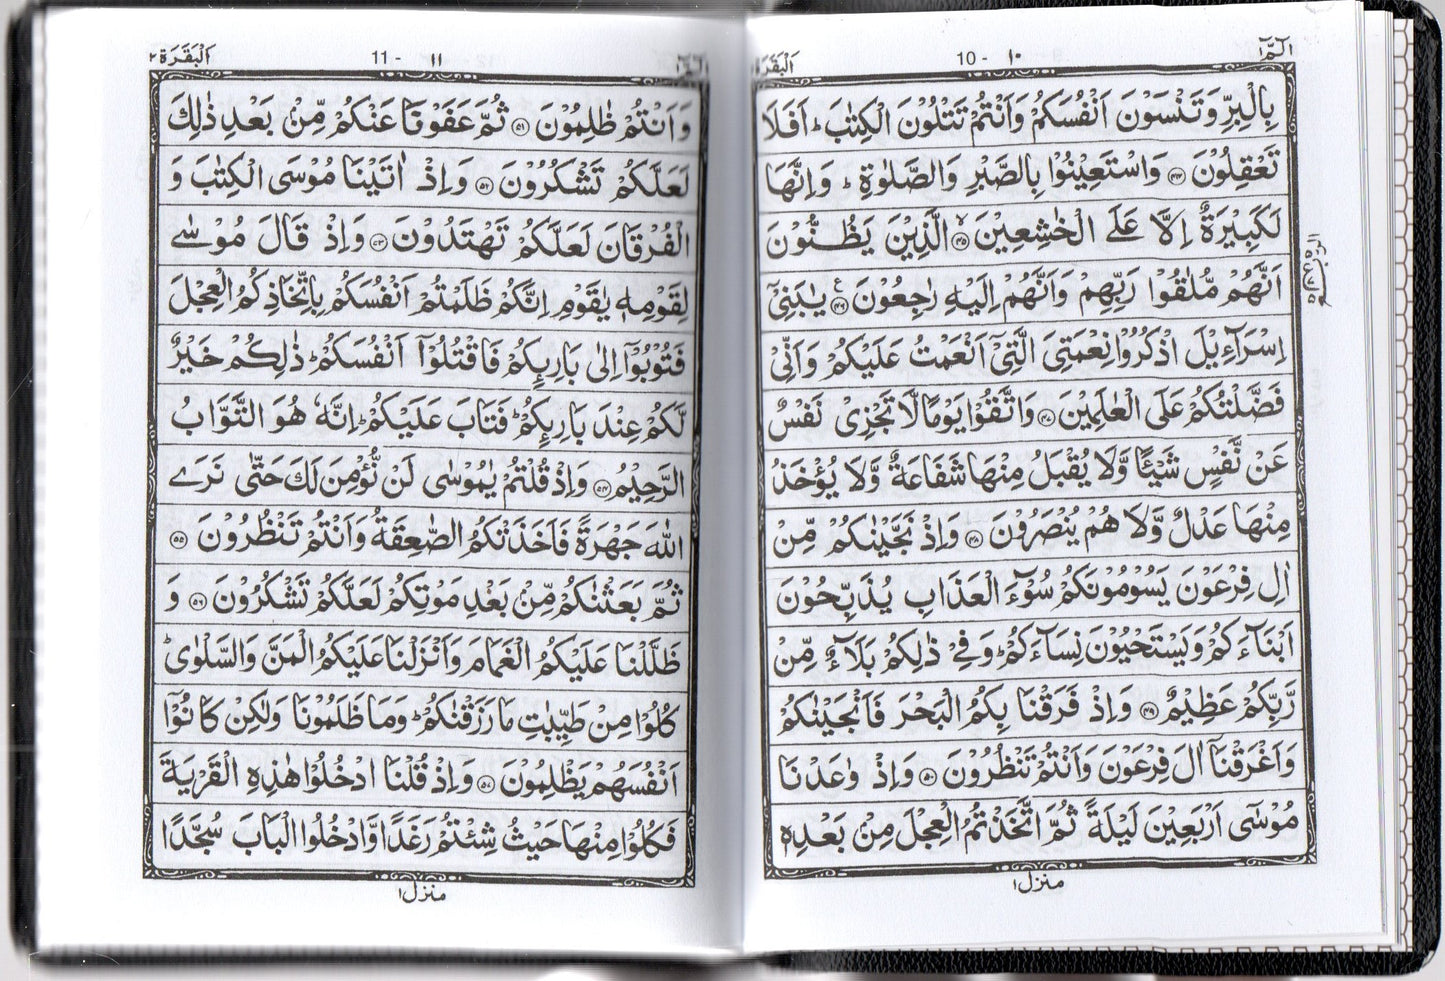 الٓمّٓ ١
10 - ١٠
اَلْبَقَرَة
بِالْبِرِّ وَتَنْسَوْنَ اَنْفُسَكُمْ وَاَنْتُمْ تَتْلُوْنَ الْكِتٰبَ ؕ اَفَلَا
تَعْقِلُوْنَ ﴿۴۴﴾ وَاسْتَعِيْنُوْا بِالصَّبْرِ وَالصَّلٰوةِ ؕ وَاِنَّهَا
لَكَبِيْرَةٌ اِلَّا عَلَى الْخٰشِعِيْنَ ﴿۴۵﴾ۙ الَّذِيْنَ يَظُنُّوْنَ
اَنَّهُمْ مُّلٰقُوْا رَبِّهِمْ وَاَنَّهُمْ اِلَيْهِ رٰجِعُوْنَ ﴿۴۶﴾ع يٰبَنِيْٓ
اِسْرَآءِيْلَ اذْكُرُوْا نِعْمَتِيَ الَّتِيْٓ اَنْعَمْتُ عَلَيْكُمْ وَاَنِّيْ
فَضَّلْتُكُمْ عَلَى الْعٰلَمِيْنَ ﴿۴۷﴾ وَاتَّقُوْا يَوْمًا لَّا تَجْزِيْ نَفْسٌ
عَنْ نَّفْسٍ شَيْـًٔا وَّلَا يُقْبَلُ مِنْهَا شَفَاعَةٌ وَّلَا يُؤْخَذُ
مِنْهَا عَدْلٌ وَّلَا هُمْ يُنْصَرُوْنَ ﴿۴۸﴾ وَاِذْ نَجَّيْنٰكُمْ مِّنْ
اٰلِ فِرْعَوْنَ يَسُوْمُوْنَكُمْ سُوْٓءَ الْعَذَابِ يُذَبِّحُوْنَ
اَبْنَآءَكُمْ وَيَسْتَحْيُوْنَ نِسَآءَكُمْ ؕ وَفِيْ ذٰلِكُمْ بَلَآءٌ مِّنْ
رَّبِّكُمْ عَظِيْمٌ ﴿۴۹﴾ وَاِذْ فَرَقْنَا بِكُمُ الْبَحْرَ فَاَنْجَيْنٰكُمْ
وَاَغْرَقْنَآ اٰلَ فِرْعَوْنَ وَاَنْتُمْ تَنْظُرُوْنَ ﴿۵۰﴾ وَاِذْ وٰعَدْنَا
مُوْسٰٓى اَرْبَعِيْنَ لَيْلَةً ثُمَّ اتَّخَذْتُمُ الْعِجْلَ مِنْۢ بَعْدِهٖ
منزل ١
11 - ١١
اَلْبَقَرَة ٢
وَاَنْتُمْ ظٰلِمُوْنَ ﴿۵۱﴾ ثُمَّ عَفَوْنَا عَنْكُمْ مِّنْۢ بَعْدِ ذٰلِكَ
لَعَلَّكُمْ تَشْكُرُوْنَ ﴿۵۲﴾ وَاِذْ اٰتَيْنَا مُوْسَى الْكِتٰبَ وَ
الْفُرْقَانَ لَعَلَّكُمْ تَهْتَدُوْنَ ﴿۵۳﴾ وَاِذْ قَالَ مُوْسٰى
لِقَوْمِهٖ يٰقَوْمِ اِنَّكُمْ ظَلَمْتُمْ اَنْفُسَكُمْ بِاتِّخَاذِكُمُ الْعِجْلَ
فَتُوْبُوْٓا اِلٰى بَارِئِكُمْ فَاقْتُلُوْٓا اَنْفُسَكُمْ ؕ ذٰلِكُمْ خَيْرٌ
لَّكُمْ عِنْدَ بَارِئِكُمْ ؕ فَتَابَ عَلَيْكُمْ ؕ اِنَّهٗ هُوَ التَّوَّابُ
الرَّحِيْمُ ﴿۵۴﴾ وَاِذْ قُلْتُمْ يٰمُوْسٰى لَنْ نُّؤْمِنَ لَكَ حَتّٰى نَرَى
اللّٰهَ جَهْرَةً فَاَخَذَتْكُمُ الصّٰعِقَةُ وَاَنْتُمْ تَنْظُرُوْنَ ﴿۵۵﴾
ثُمَّ بَعَثْنٰكُمْ مِّنْۢ بَعْدِ مَوْتِكُمْ لَعَلَّكُمْ تَشْكُرُوْنَ ﴿۵۶﴾ وَ
ظَلَّلْنَا عَلَيْكُمُ الْغَمَامَ وَاَنْزَلْنَا عَلَيْكُمُ الْمَنَّ وَالسَّلْوٰى ؕ
كُلُوْا مِنْ طَيِّبٰتِ مَا رَزَقْنٰكُمْ ؕ وَمَا ظَلَمُوْنَا وَلٰكِنْ كَانُوْٓا
اَنْفُسَهُمْ يَظْلِمُوْنَ ﴿۵۷﴾ وَاِذْ قُلْنَا ادْخُلُوْا هٰذِهِ الْقَرْيَةَ
فَكُلُوْا مِنْهَا حَيْثُ شِئْتُمْ رَغَدًا وَّادْخُلُوا الْبَابَ سُجَّدًا
منزل ١